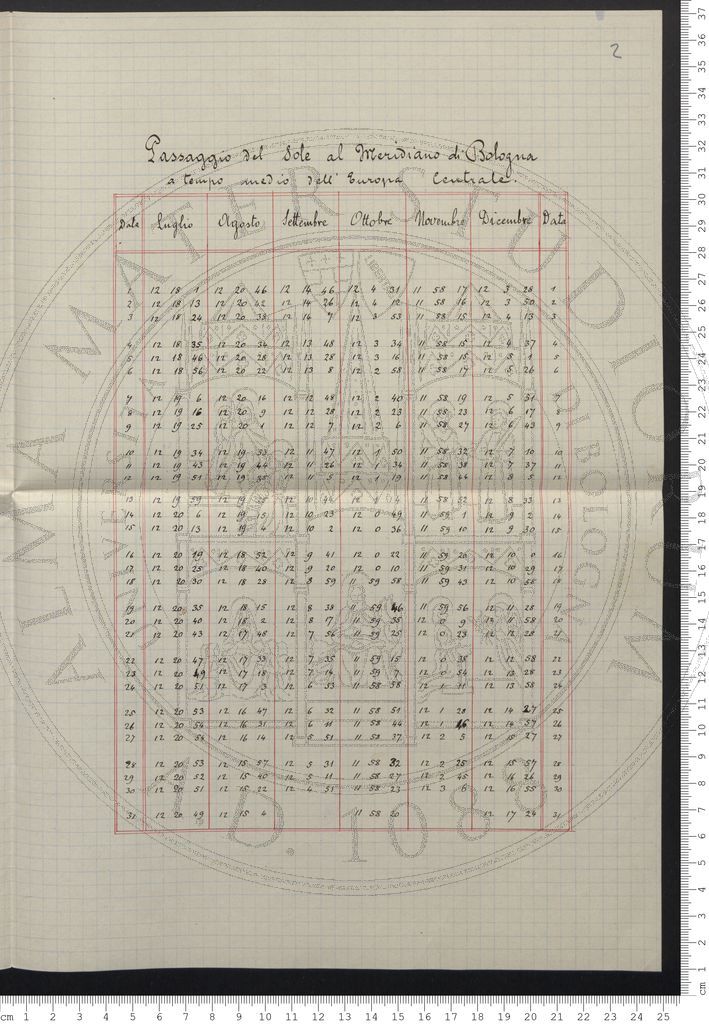 2
Passaggio del Sole al Meridiano di Bologna
a tempo medio dell'Europa Centrale.
Data Luglio Agosto Settembre Ottobre Novembre Dicembre Data
1 12 18 1 12 20 46 12 14 46 12 4 31 11 58 17 12 3 28 1
2 12 18 13 12 20 42 12 14 26 12 4 12 11 58 16 12 3 50 2
3 12 18 24 12 20 38 12 14 7 12 3 53 11 58 15 12 4 13 3
4 12 18 35 12 20 34 12 13 48 12 3 34 11 58 15 12 4 37 4
5 12 18 46 12 20 28 12 13 28 12 3 16 11 58 15 12 5 1 5
6 12 18 56 12 20 22 12 13 8 12 2 58 11 58 17 12 5 26 6
7 12 19 6 12 20 16 12 12 48 12 2 40 11 58 19 12 5 51 7
8 12 19 16 12 20 9 12 12 28 12 2 23 11 58 23 12 6 17 8
9 12 19 25 12 20 1 12 12 7 12 2 6 11 58 27 12 6 43 9
10 12 19 34 12 19 53 12 11 47 12 1 50 11 58 32 12 7 10 10
11 12 19 43 12 19 44 12 11 26 12 1 34 11 58 38 12 7 37 11
12 12 19 51 12 19 35 12 11 5 12 1 19 11 58 44 12 8 5 12
13 12 19 59 12 19 25 12 10 44 12 1 4 11 58 52 12 8 33 13
14 12 20 6 12 19 15 12 10 23 12 0 49 11 59 1 12 9 2 14
15 12 20 13 12 19 4 12 10 2 12 0 36 11 59 10 12 9 30 15
16 12 20 19 12 18 52 12 9 41 12 0 22 11 59 20 12 10 0 16
17 12 20 25 12 18 40 12 9 20 12 0 10 11 59 31 12 10 29 17
18 12 20 30 12 18 28 12 8 59 11 59 58 11 59 43 12 10 58 18
19 12 20 35 12 18 15 12 8 38 11 59 46 11 59 56 12 11 28 19
20 12 20 40 12 18 2 12 8 17 11 59 35 12 0 9 12 11 58 20
21 12 20 43 12 17 48 12 7 56 11 59 25 12 0 23 12 12 28 21
22 12 20 47 12 17 33 12 7 35 11 59 15 12 0 38 12 12 58 22
23 12 20 49 12 17 18 12 7 14 11 59 7 12 0 54 12 13 28 23
24 12 20 51 12 17 3 12 6 53 11 58 58 12 1 11 12 13 58 24
25 12 20 53 12 16 47 12 6 32 11 58 51 12 1 28 12 14 27 25
26 12 20 54 12 16 31 12 6 11 11 58 44 12 1 46 12 14 57 26
27 12 20 54 12 16 14 12 5 51 11 58 37 12 2 5 12 15 27 27
28 12 20 53 12 15 57 12 5 31 11 58 32 12 2 25 12 15 57 28
29 12 20 52 12 15 40 12 5 11 11 58 27 12 2 45 12 16 26 29
30 12 20 51 12 15 22 12 4 51 11 58 23 12 3 6 12 16 55 30
31 12 20 49 12 15 4 11 58 20 12 17 24 31
ALMA MATER STUDIORUM
UNIVERSITÀ DI BOLOGNA
A.D. 1088
LIBERTAS
cm 1 2 3 4 5 6 7 8 9 10 11 12 13 14 15 16 17 18 19 20 21 22 23 24 25
cm 1 2 3 4 5 6 7 8 9 10 11 12 13 14 15 16 17 18 19 20 21 22 23 24 25 26 27 28 29 30 31 32 33 34 35 36 37